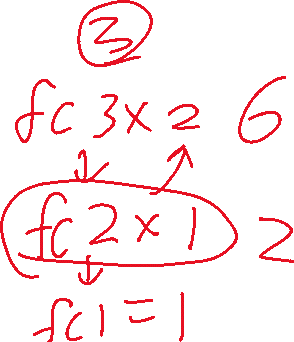 3
fc 3x2 6
fc 2x1 2
fc1=1